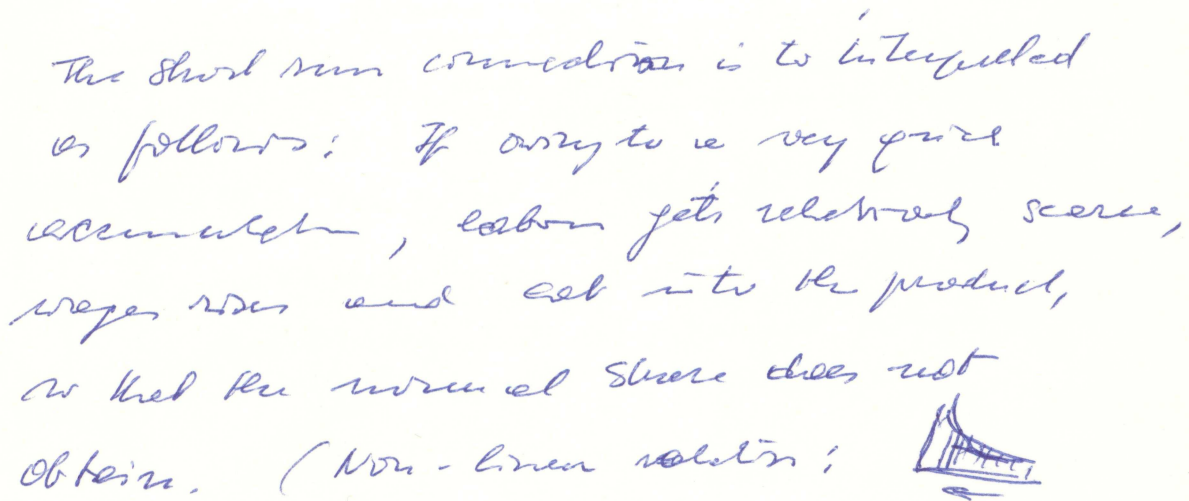 The short run connection is to interpreted
as follows: If owing to a very quick
accumulation, labour gets relatively scarce,
wages rises and eat into the product,
so that the normal share does not
obtain. (Non-linear relation: